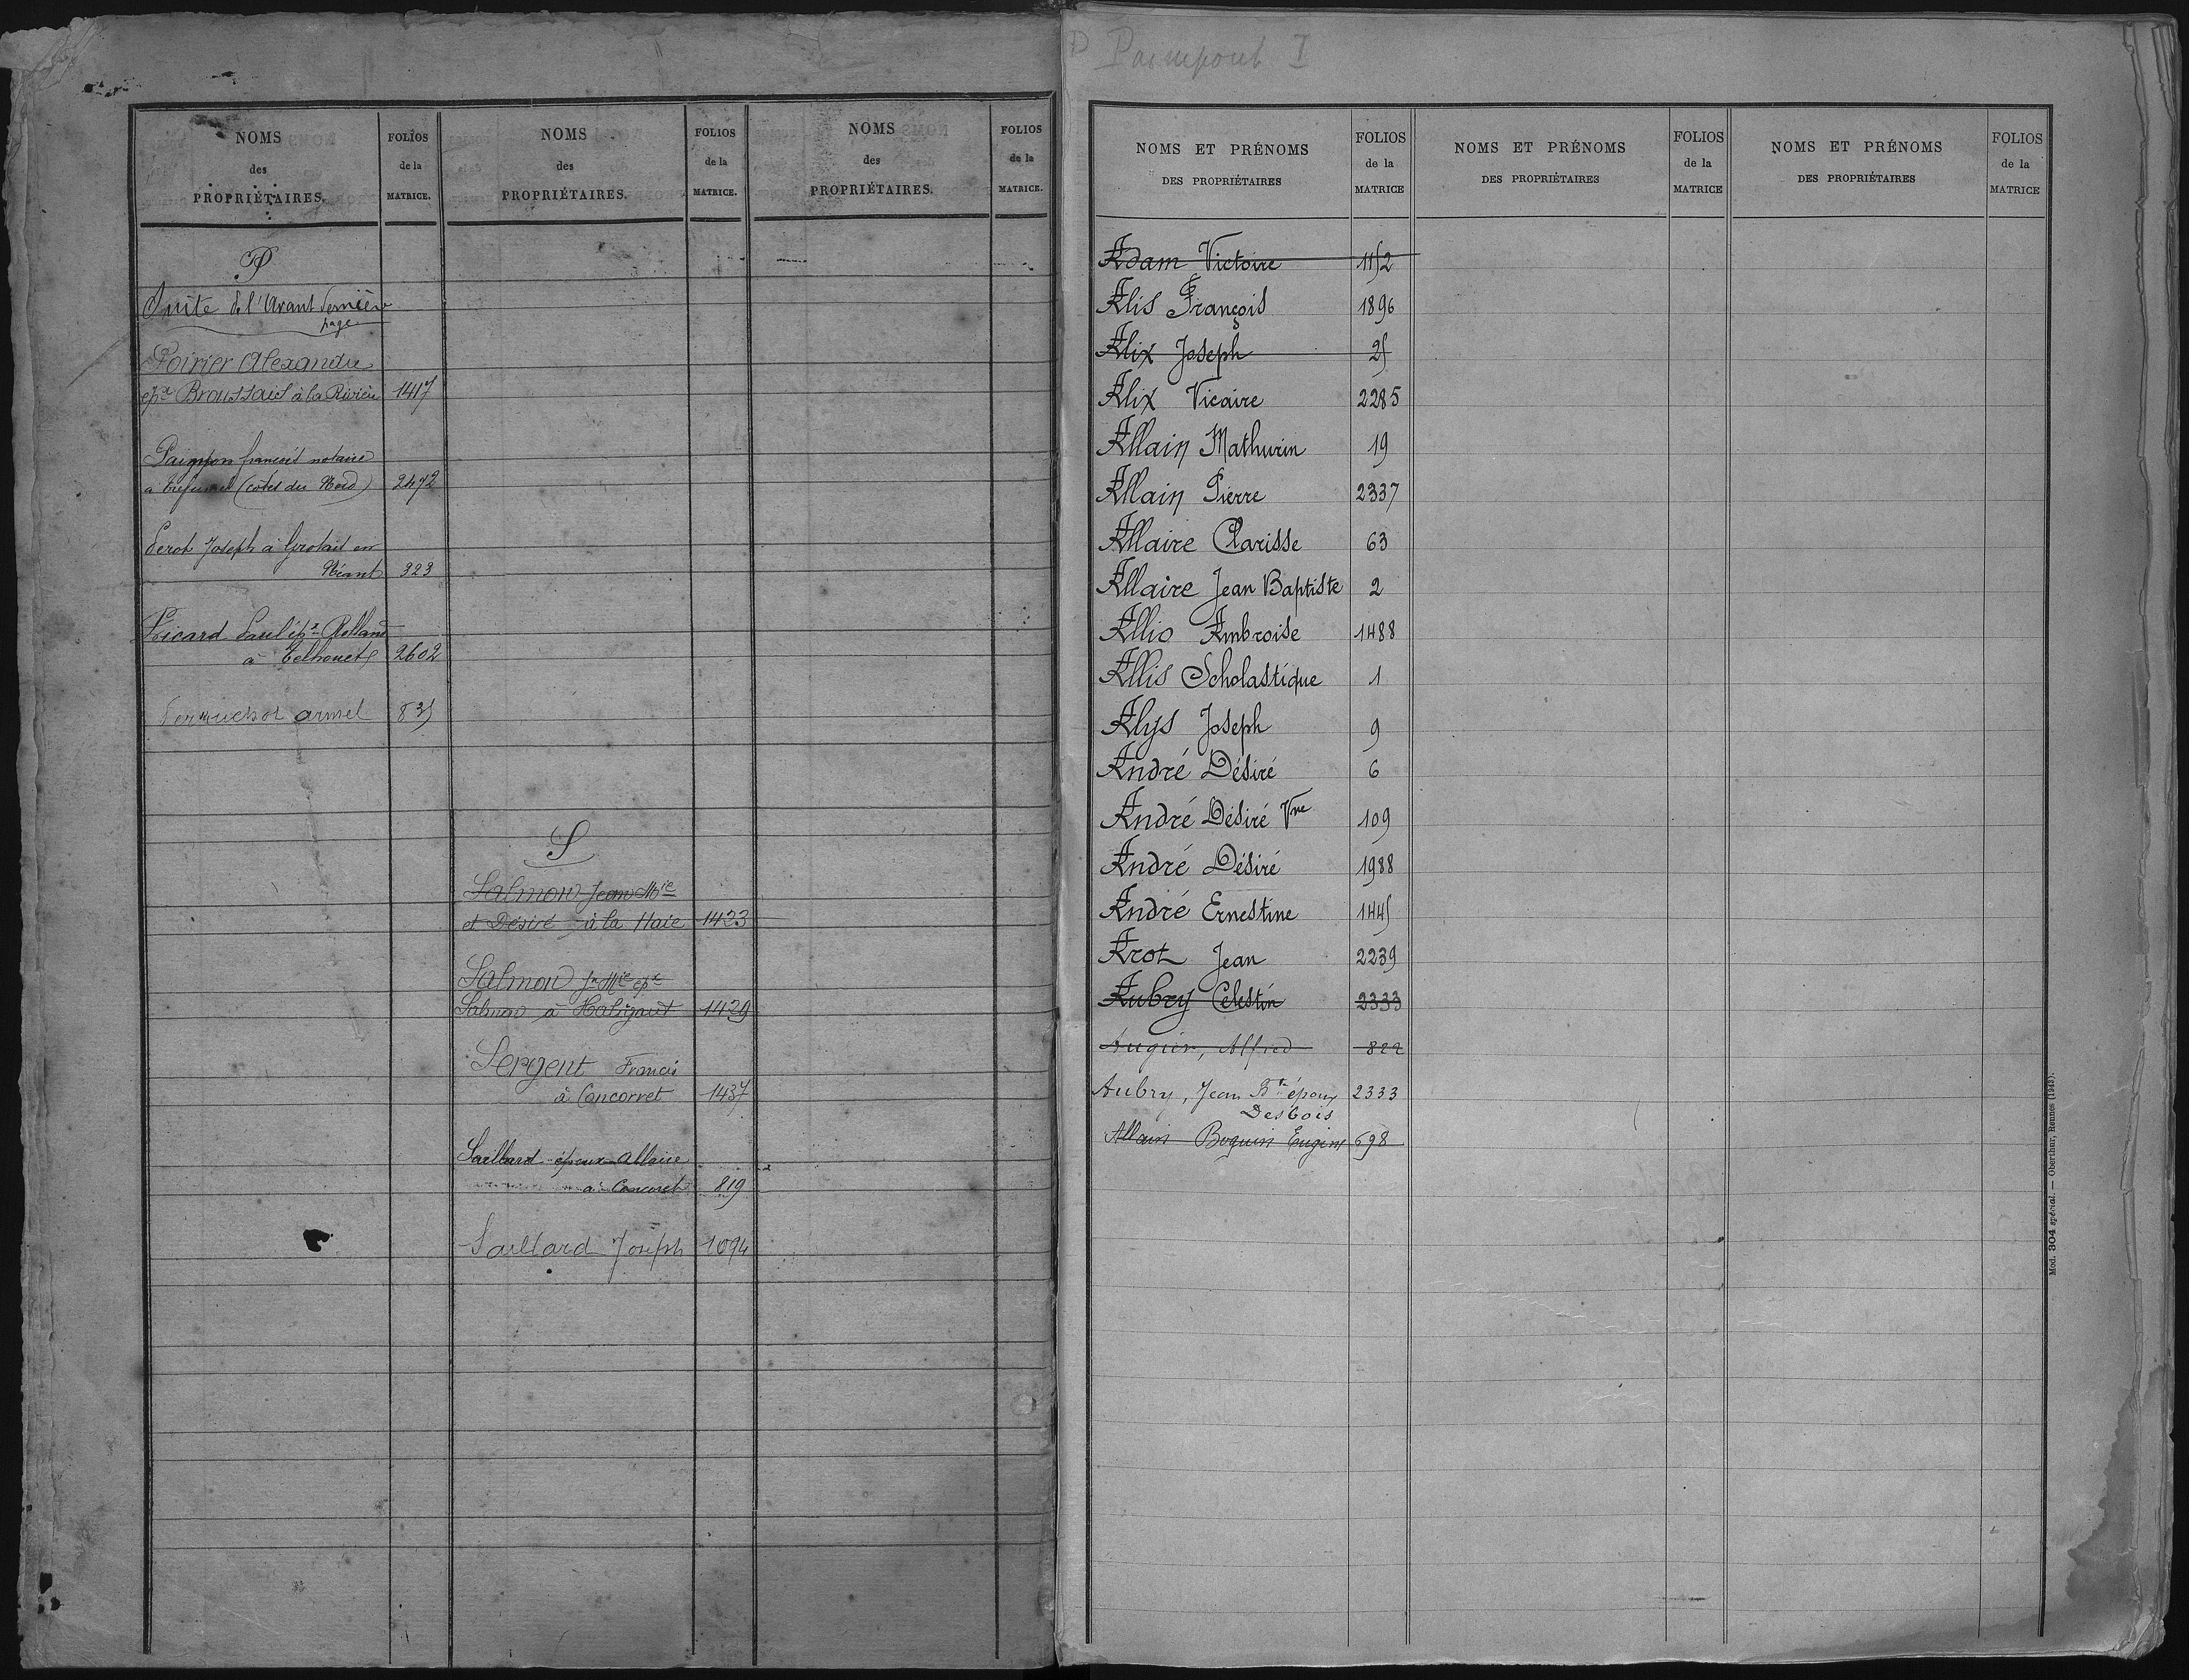 NOMS
des
PROPRIÉTAIRES.
FOLIOS
de la
MATRICE.
NOMS
des
PROPRIÉTAIRES.
FOLIOS
de la
MATRICE.
NOMS
des
PROPRIÉTAIRES.
FOLIOS
de la
MATRICE.
P
Suite de l'Avant dernière
page
Poirier Alexandre
épx Broussais à la Rivière 1417
Paimpon françois notaire
a (côtes du Nord) 2472
Perot Joseph à en
Néant 323
Picard Paul épx Rolland
à Telhouet 2602
Perruchot armel 835
S
Salmon Jean Mie
et Désiré à la Haie 1423
Salmon Jn Mie épx
Salmon à 1429
Sergent Francis
à Concorret 1437
Saillard époux Allaire
à Concoret 819
Saillard Joseph 1094
Paimpont I
NOMS ET PRÉNOMS
DES PROPRIÉTAIRES
FOLIOS
de la
MATRICE
NOMS ET PRÉNOMS
DES PROPRIÉTAIRES
FOLIOS
de la
MATRICE
NOMS ET PRÉNOMS
DES PROPRIÉTAIRES
FOLIOS
de la
MATRICE
Adam Victoire 1152
Alis François 1896
Alix Joseph 25
Alix Vicaire 2285
Allain Mathurin 19
Allain Pierre 2337
Allaire Clarisse 63
Allaire Jean Baptiste 2
Allio Ambroise 1488
Allis Scholastique 1
Alys Joseph 9
André Désiré 6
André Désiré Vve 109
André Désiré 1988
André Ernestine 1445
Arot Jean 2239
Aubry Celestin 2333
Augier, Alfred 822
Aubry, Jean Bte époux 2333
Desbois
Allain Boquin Eugène 698
Mod. 304 spécial. — Oberthur, Rennes (1943).